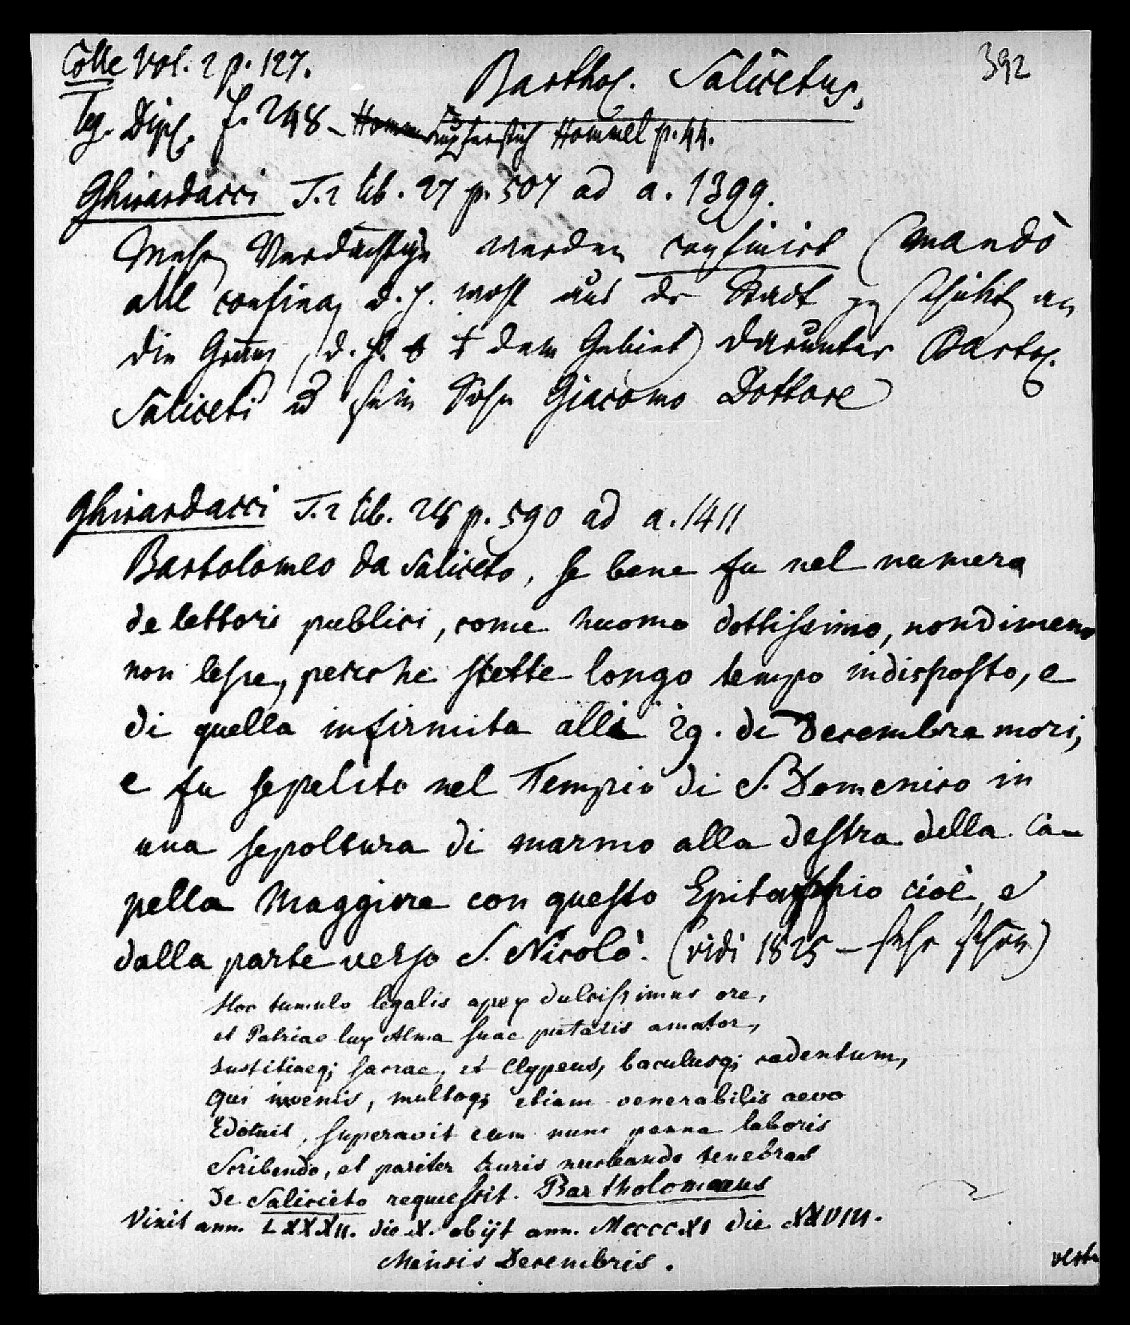 392
Colle Vol. 2 p. 127.
Barthol. Salicetus.
Tg. Dipl. f. 248 – Kupferstich Hommel p. 44.
Ghirardacci T. 2 lib. 27 p. 507 ad a. 1399.
Mehr Verdächtige werden confinirt (mandò
alli confina, d. h. wohl aus der Stadt zu schickt an
die Gränz, d. h. dem Gebiet) darunter Barthol.
Saliceti u sein Sohn Giacomo Dottore
Ghirardacci T. 2 lib. 28 p. 590 ad a. 1411
Bartolomeo da Saliceto, se bene fu nel numero
de lettori publici, come huomo dottissimo, nondimeno
non lesse, perche stette longo tempo indisposto, e
di quella infirmita alli 29. di Decembre mori,
e fu sepelito nel Tempio di S. Domenico in
una sepoltura di marmo alla destra della Ca-
pella Maggiore con questo Epitaffio cioè, e
dalla parte verso S. Nicolò. (vidi 1825 – sehr schön)
Hoc tumulo legalis apex dulcissimus ore,
et Patriae lux Alma suae pietatis amator,
Iustitiaeq; sacrae, et Clypeus, baculusq; cadentum,
Qui iuvenis, multoq; etiam venerabilis aevo
Edocuit, superavit eum nunc penna laboris
Scribendo, et pariter iuris nudando tenebras
De Saliceto requiescit. Bartholomaeus
Vixit ann. LXXXII. die X. obijt ann. MCCCCXI die XXVIII.
Mensis Decembris.